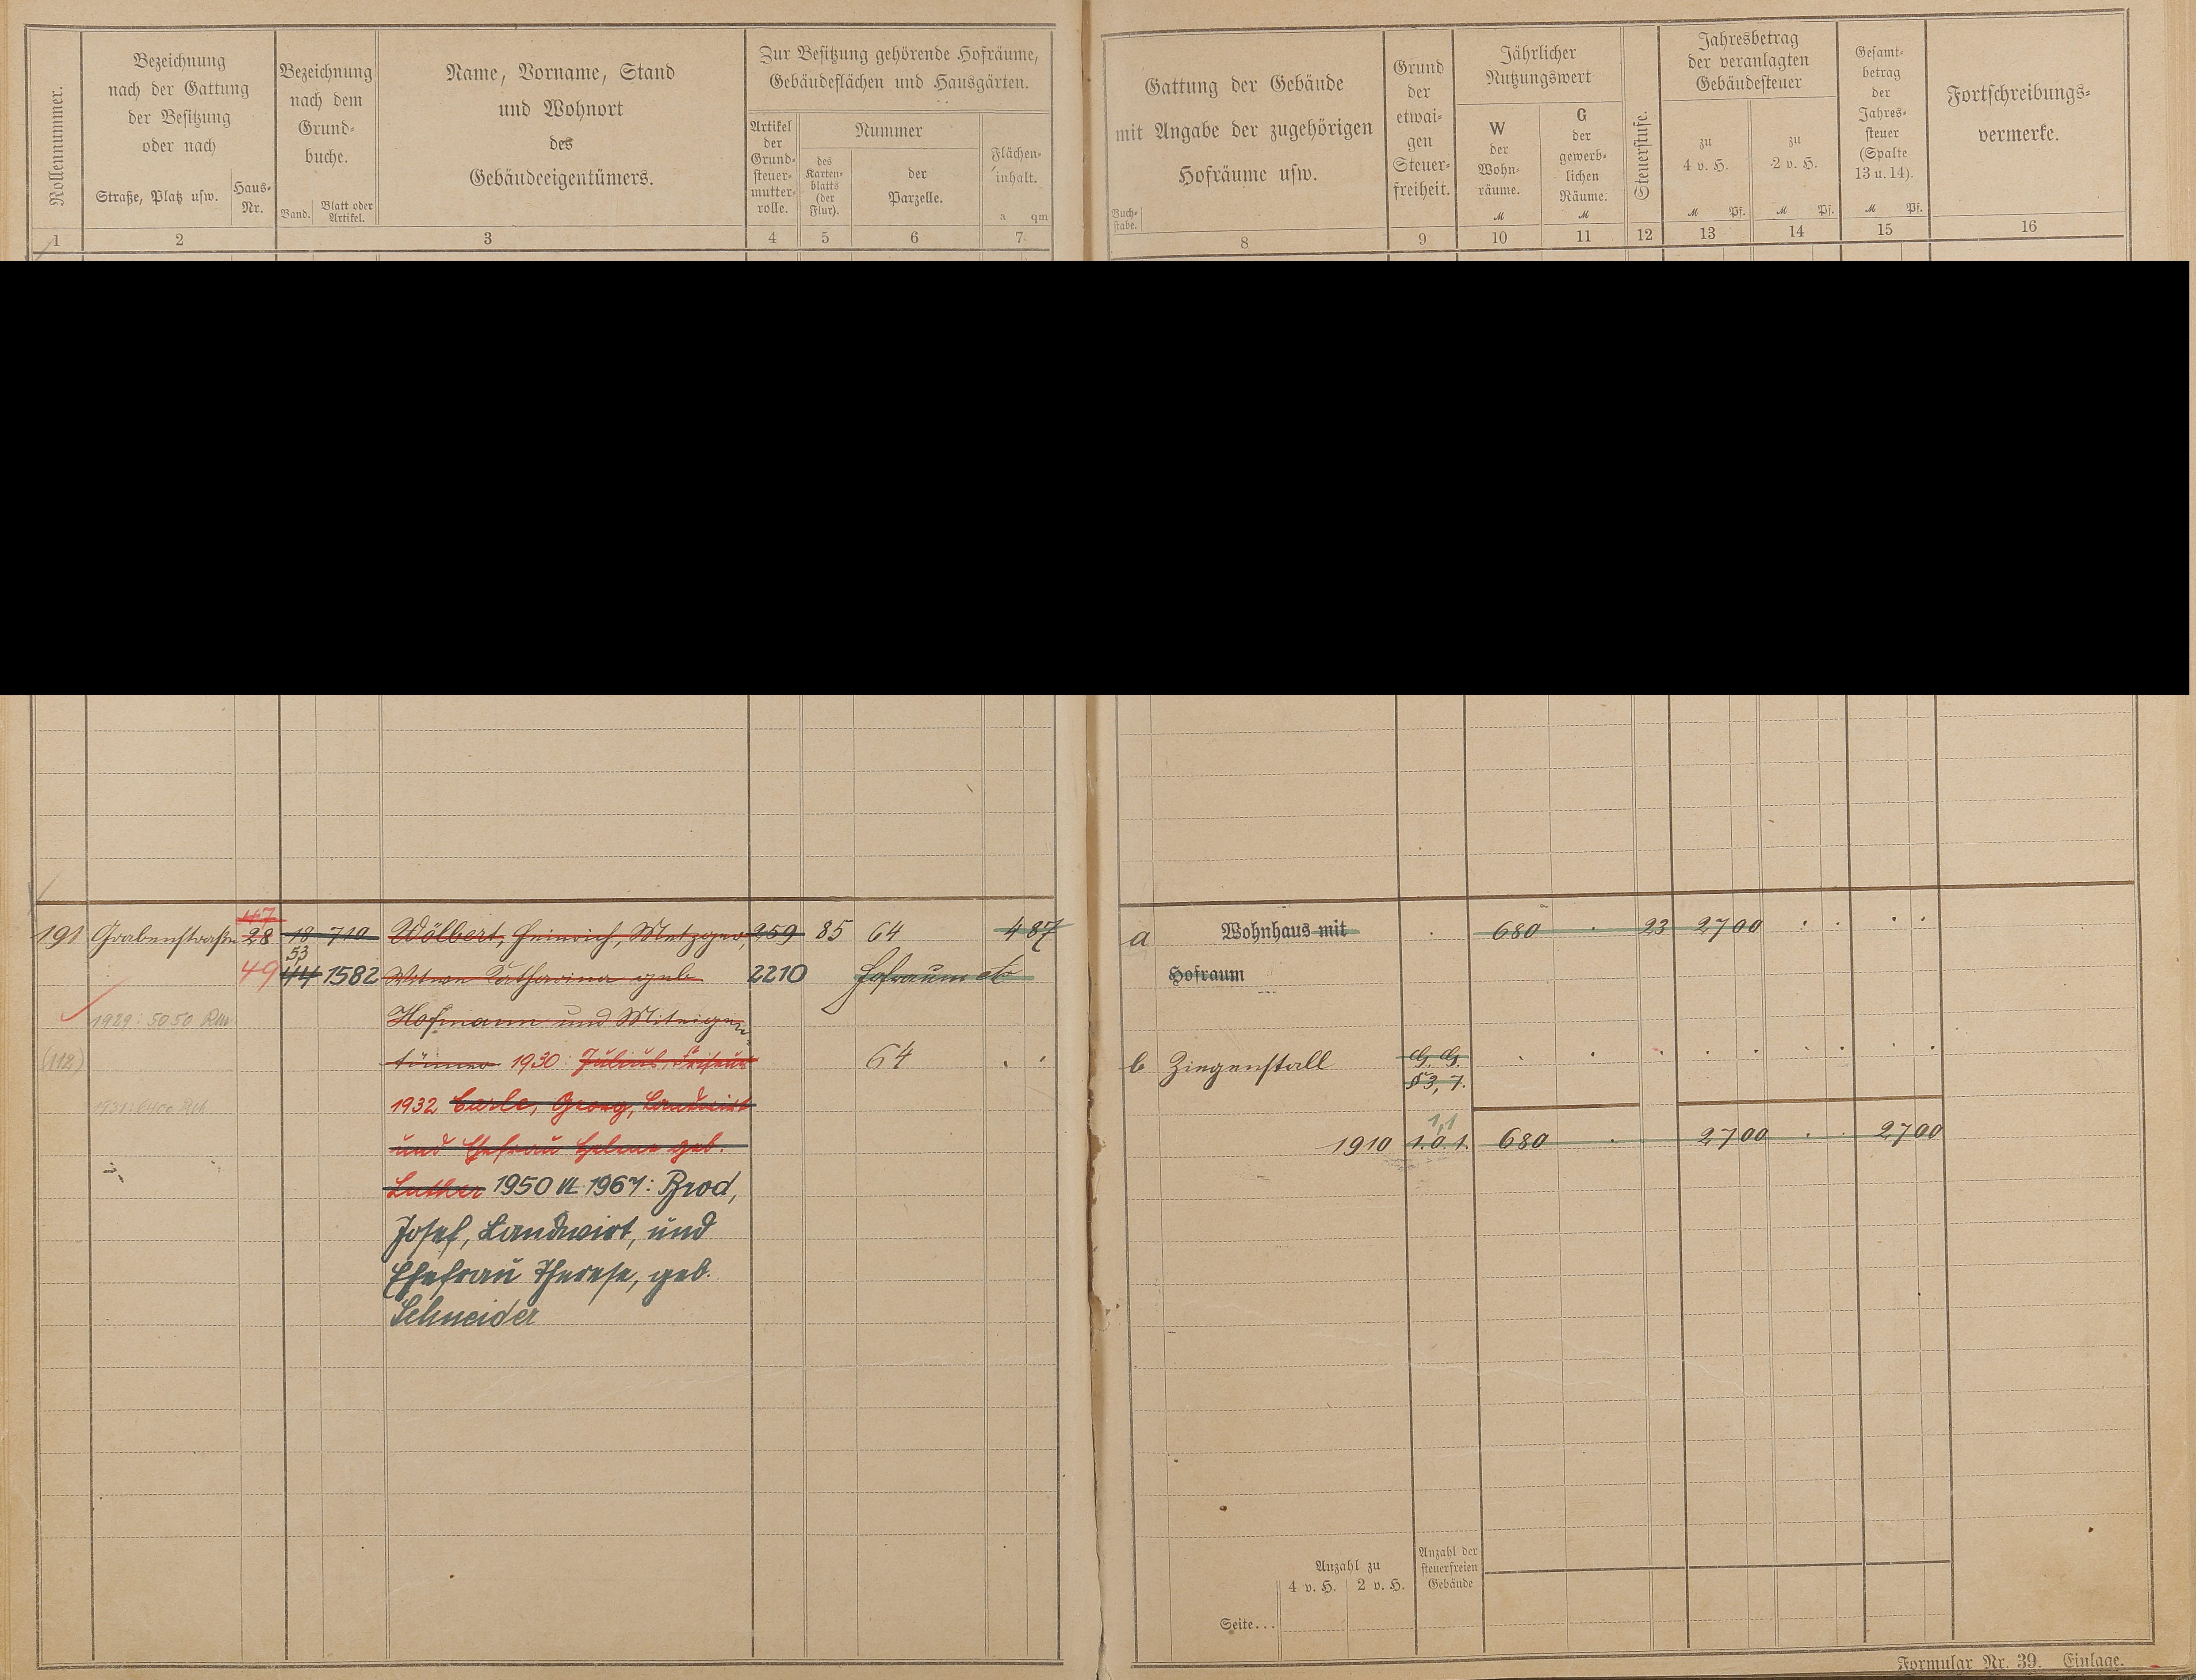 Rollennummer.
Bezeichnung
nach der Gattung
der Besitzung
oder nach
Straße, Platz usw.
Haus-
Nr.
Bezeichnung
nach dem
Grund-
buche.
Band.
Blatt oder
Artikel.
Name, Vorname, Stand
und Wohnort
des
Gebäudeeigentümers.
Zur Besitzung gehörende Hofräume,
Gebäudeflächen und Hausgärten.
Artikel
der
Grund-
steuer-
mutter-
rolle.
Nummer
des
Karten-
blatts
(der
Flur).
der
Parzelle.
Flächen-
inhalt.
a qm
1 2 3 4 5 6 7
Buch-
stabe.
Gattung der Gebäude
mit Angabe der zugehörigen
Hofräume usw.
Grund
der
etwai-
gen
Steuer-
freiheit.
Jährlicher
Nutzungswert
W
der
Wohn-
räume.
M
G
der
gewerb-
lichen
Räume.
M
Steuerstufe.
Jahresbetrag
der veranlagten
Gebäudesteuer
zu
4 v. H.
M Pf.
zu
2 v. H.
M Pf.
Gesamt-
betrag
der
Jahres-
steuer
(Spalte
13 u. 14).
M Pf.
Fortschreibungs-
vermerke.
8 9 10 11 12 13 14 15 16
47
191 Grabenstraße 28 18 710 Wölbert, Heinrich, Metzger 259 85 64 4 87
53
49 44 1582 Witwe Katharina geb. 2210 Hofraum etc
1929: 5050 Rm Hofmann und Miteigen-
(112) tümer 1930: Julius, 64
1931: 6400 Rm 1932 Carle, Georg, Landwirt
und Ehefrau Helene geb.
Luther 1950 VL 1967: Brod,
Josef, Landwirt, und
Ehefrau Therese, geb.
Schneider
a Wohnhaus mit 680 23 27 00
Hofraum
b Ziegenstall G. G.
§ 3, 7.
1,1
1910 1.0.1. 680 27 00 27 00
Anzahl zu
4 v. H. 2 v. H.
Anzahl der
steuerfreien
Gebäude
Seite...
Formular Nr. 39. Einlage.